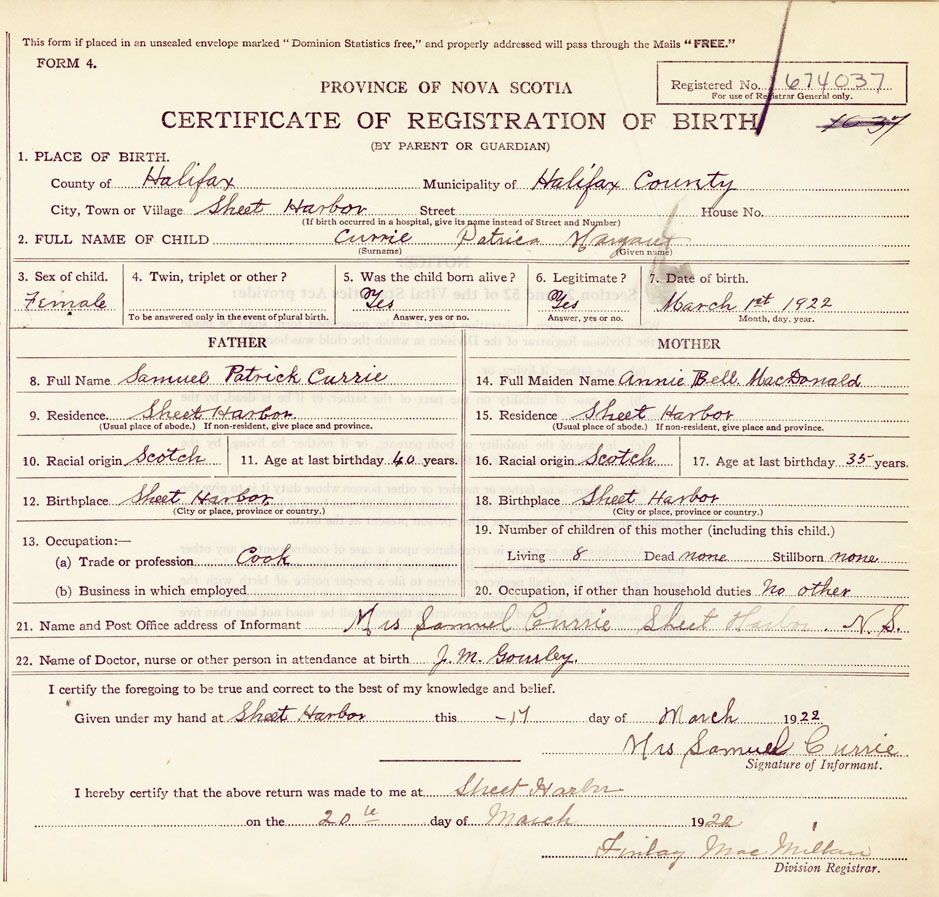 This form if placed in an unsealed envelope marked "Dominion Statistics free," and properly addressed will pass through the Mails "FREE."
FORM 4.
Registered No. 674037
For use of Registrar General only.
PROVINCE OF NOVA SCOTIA
CERTIFICATE OF REGISTRATION OF BIRTH
(BY PARENT OR GUARDIAN)
1. PLACE OF BIRTH.
County of Halifax Municipality of Halifax County
City, Town or Village Sheet Harbor Street House No.
(If birth occurred in a hospital, give its name instead of Street and Number)
2. FULL NAME OF CHILD Currie Patrica Margaret
(Surname) (Given name)
3. Sex of child. 4. Twin, triplet or other? 5. Was the child born alive? 6. Legitimate? 7. Date of birth.
Female Yes Yes March 1st 1922
To be answered only in the event of plural birth. Answer, yes or no. Answer, yes or no. Month, day, year.
FATHER
8. Full Name Samuel Patrick Currie
9. Residence. Sheet Harbor.
(Usual place of abode.) If non-resident, give place and province.
10. Racial origin Scotch 11. Age at last birthday 40 years.
12. Birthplace Sheet Harbor
(City or place, province or country.)
13. Occupation:—
(a) Trade or profession Cook
(b) Business in which employed
MOTHER
14. Full Maiden Name Annie Bell. MacDonald
15. Residence Sheet Harbor
(Usual place of abode.) If non-resident, give place and province.
16. Racial origin Scotch 17. Age at last birthday 35 years.
18. Birthplace Sheet Harbor
(City or place, province or country.)
19. Number of children of this mother (including this child.)
Living 8 Dead none Stillborn none
20. Occupation, if other than household duties No other
21. Name and Post Office address of Informant Mrs Samuel Currie Sheet Harbor. N.S.
22. Name of Doctor, nurse or other person in attendance at birth J. M. Gourley.
I certify the foregoing to be true and correct to the best of my knowledge and belief.
Given under my hand at Sheet Harbor this -17 day of March 1922
Mrs Samuel Currie
Signature of Informant.
I hereby certify that the above return was made to me at Sheet Harbor
on the 20th day of March 1922
Finlay Mac Millan
Division Registrar.